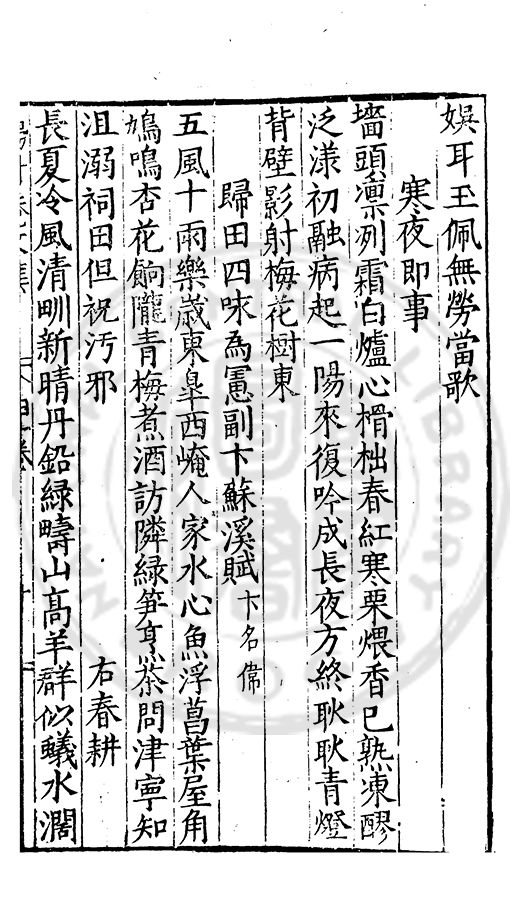 娯耳玉佩無勞當歌
寒夜即事
墻頭凛冽霜白爐心榾柮春紅寒栗煨香已熟凍醪
泛漾初融病起一陽來復吟成長夜方終耿耿青燈
背壁影射梅花樹東
歸田四味為憲副卞蘇溪賦卞名偉
五風十雨樂歲東皐西崦人家水心魚浮菖葉屋角
鳩鳴杏花餉隴青梅煮酒訪隣緑笋烹茶問津寧知
沮溺祠田但祝汚邪
右春耕
長夏冷風清畎新晴丹鉛緑疇山高羊群似蟻水濶